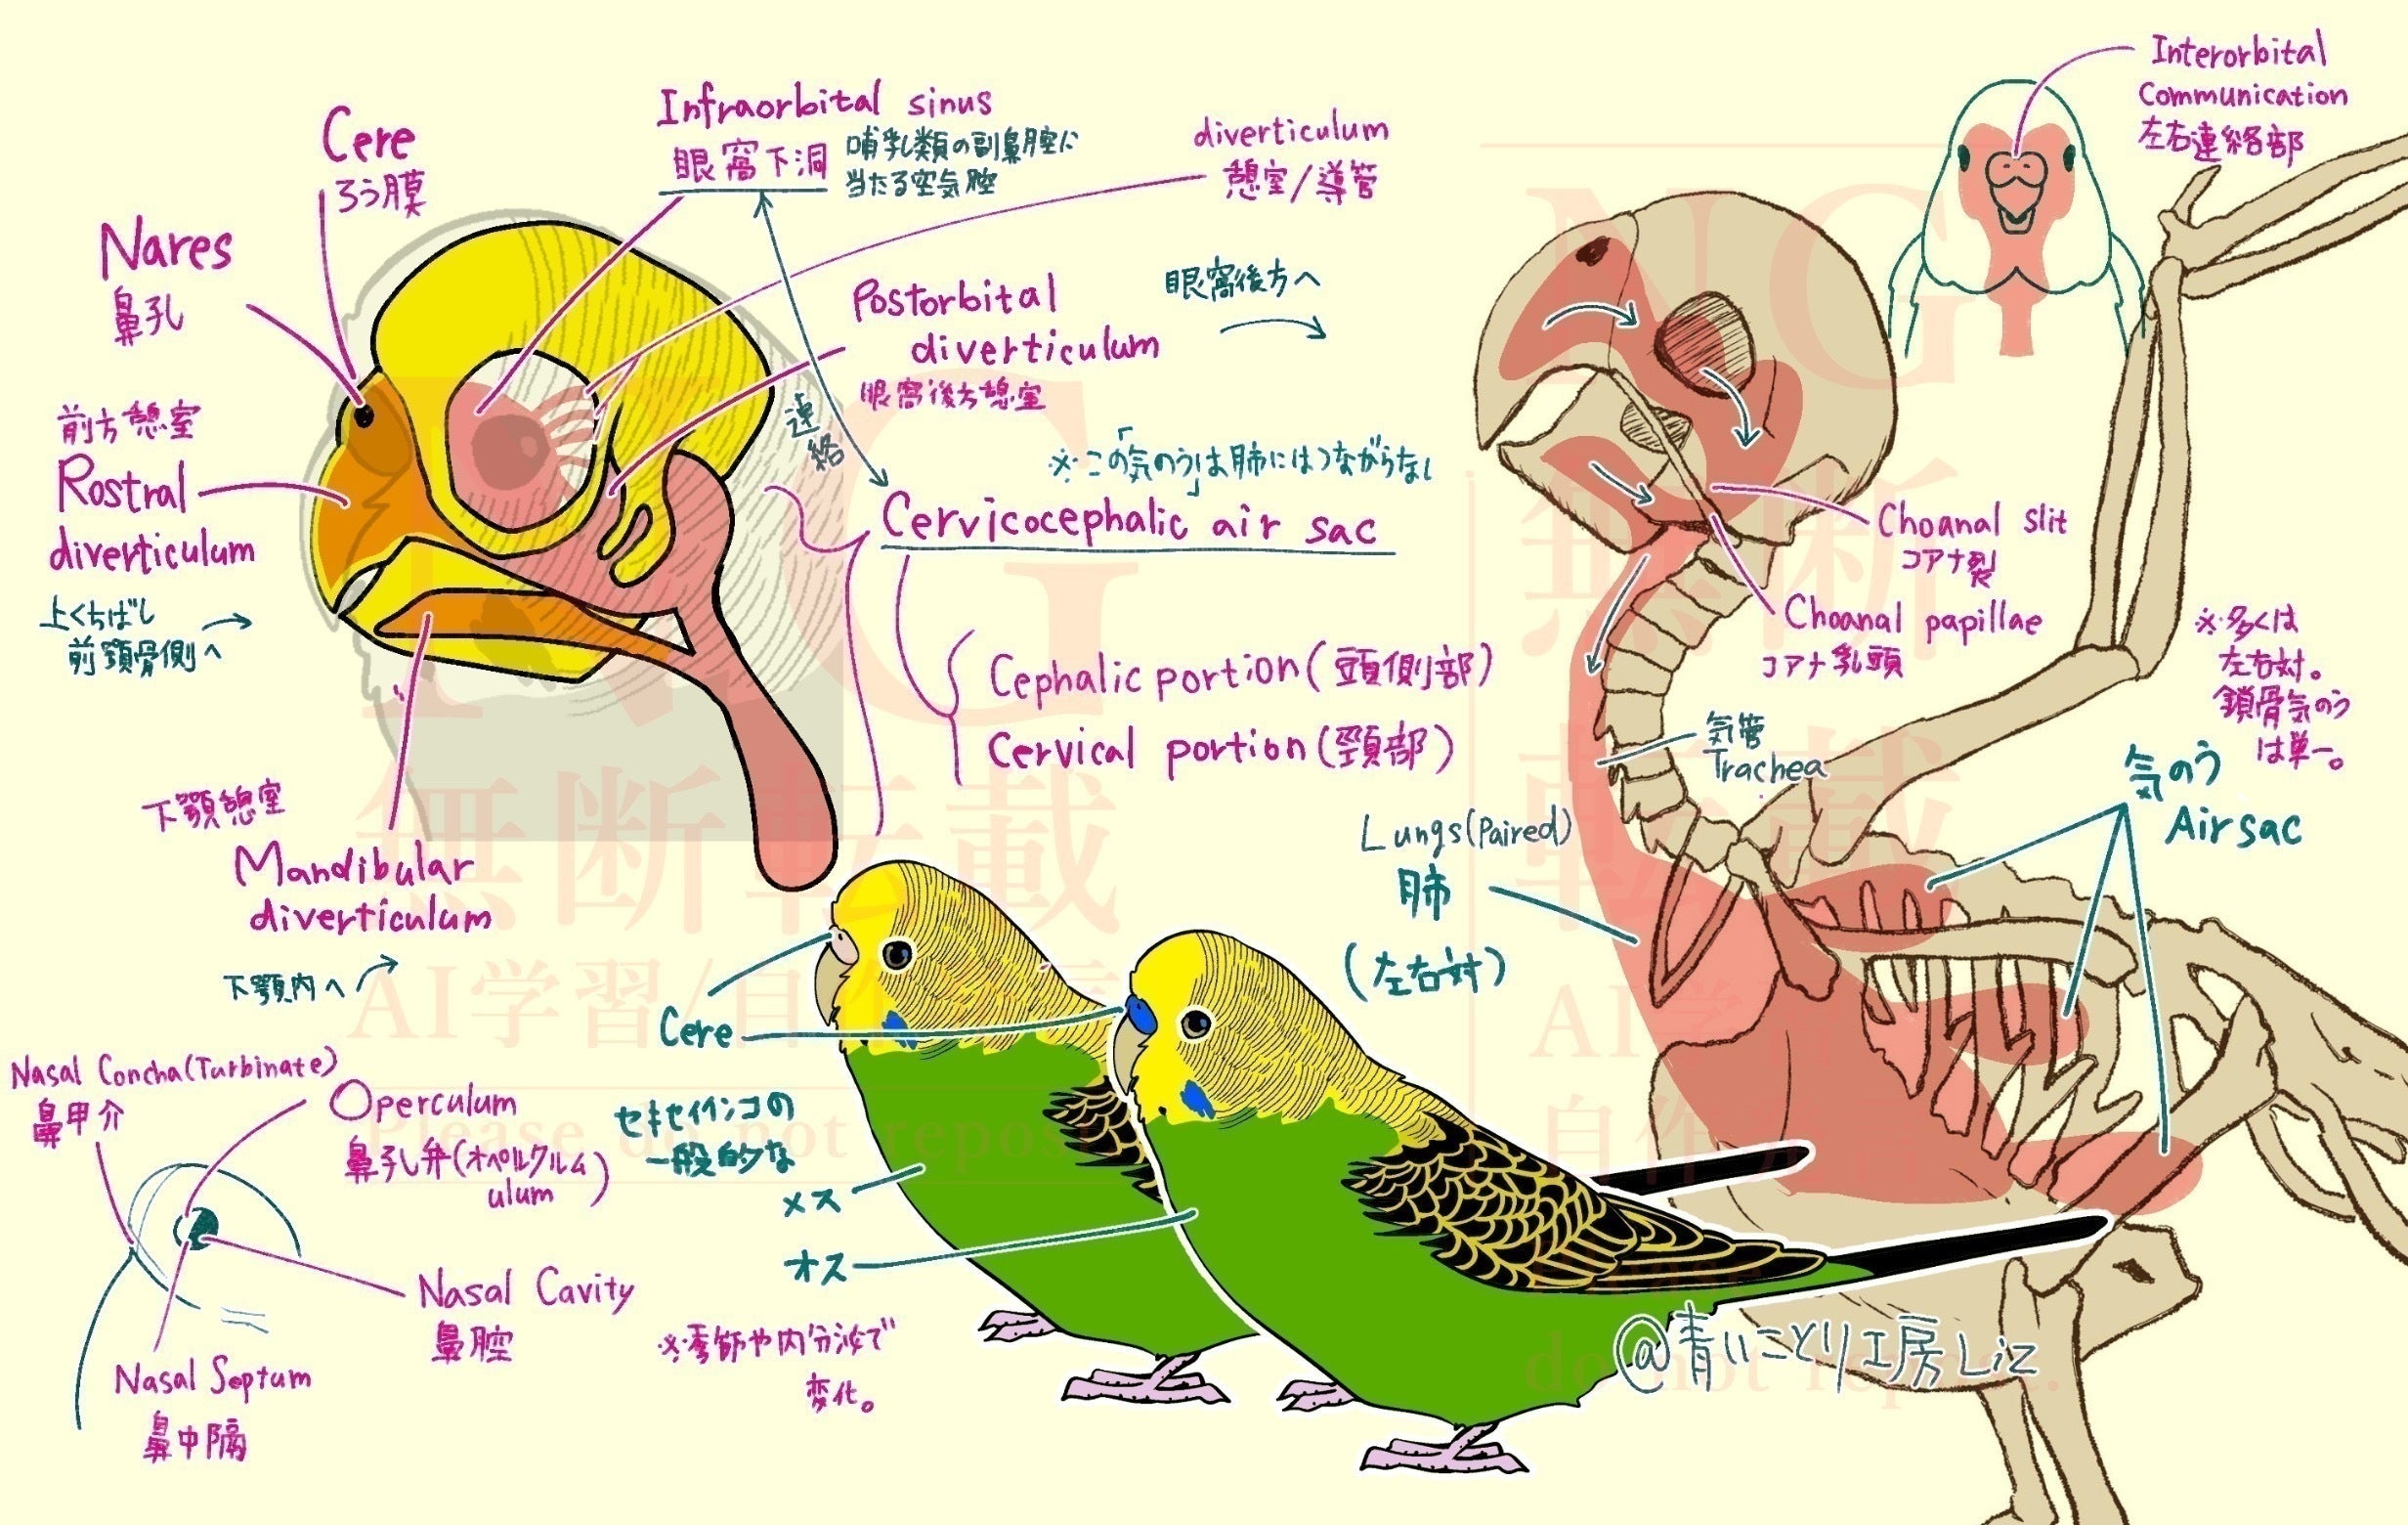 Cere
ろう膜
Nares
鼻孔
前方憩室
Rostral
diverticulum
上くちばし
前顎骨側へ
Infraorbital sinus
眼窩下洞
哺乳類の副鼻腔に
当たる空気腔
diverticulum
憩室/導管
Postorbital
diverticulum
眼窩後方憩室
眼窩後方へ
連絡
※この「気のう」は肺にはつながらない
Cervicocephalic air sac
Cephalic portion(頭側部)
Cervical portion(頸部)
下顎憩室
Mandibular
diverticulum
下顎内へ
Nasal Concha(Turbinate)
鼻甲介
Operculum
鼻孔弁(オペルクルム)
ulum
Nasal Cavity
鼻腔
Nasal Septum
鼻中隔
Cere
セキセイインコの
一般的な
メス
オス
※季節や内分泌で
変化。
Interorbital
Communication
左右連絡部
Choanal slit
コアナ裂
Choanal papillae
コアナ乳頭
気管
Trachea
Lungs(Paired)
肺
(左右対)
※多くは
左右対。
鎖骨気のう
は単一。
気のう
Air sac
@青いことり工房Liz
NG
無断転載
AI学習/自作
Please do not repost
NG
無断
転載
AI学
自作
do not repost.